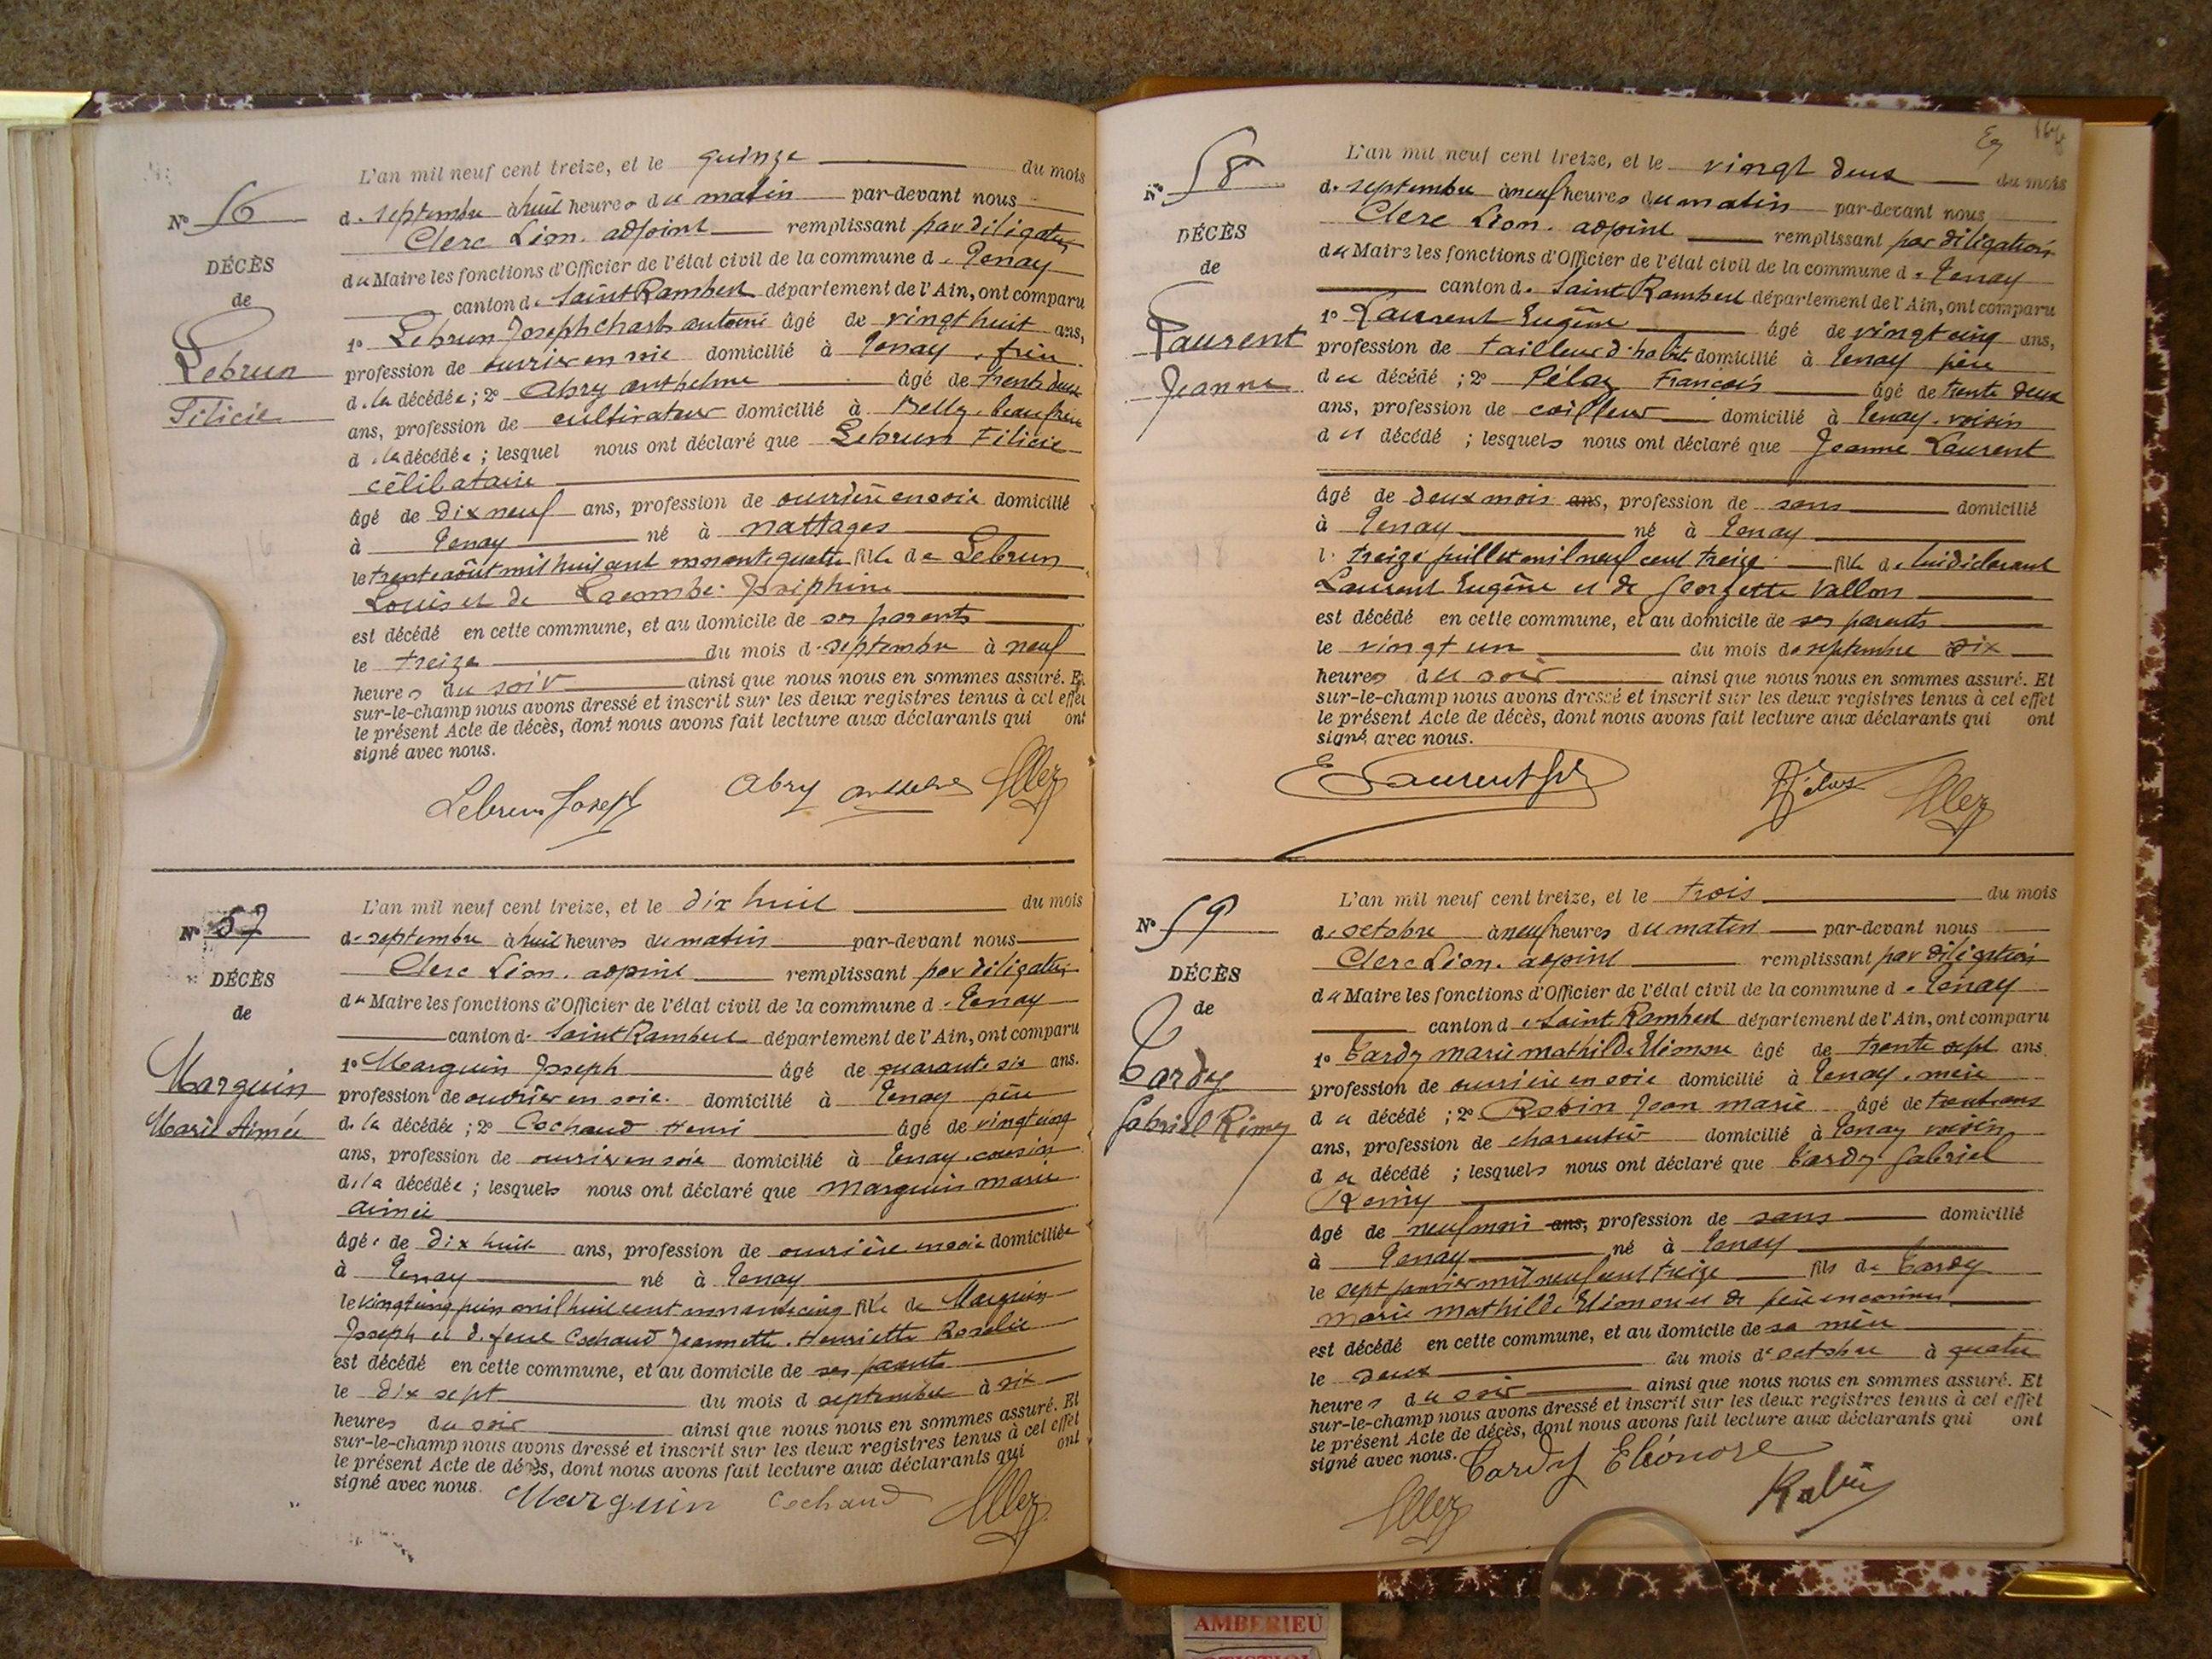 L'an mil neuf cent treize, et le quinze du mois
Nº 56
de septembre à huit heures du matin par-devant nous
Clerc Léon. adjoint remplissant par délégation
DÉCÈS
du Maire les fonctions d'Officier de l'état civil de la commune de Tenay
de
canton de Saint Rambert département de l'Ain, ont comparu
Lebrun
Félicie
1º Lebrun Joseph Charles antoine âgé de vingt huit ans,
profession de ouvrier en soie domicilié à Tenay, frère
de la décédée; 2º Abry anthelme âgé de trente deux
ans, profession de cultivateur domicilié à Belley, beau frère
de la décédée; lesquel nous ont déclaré que Lebrun Félicie
célibataire
âgé de dix neuf ans, profession de ouvrière en soie domicilié
à Tenay né à Nattages
le trente août mil huit cent nonante quatre fille de Lebrun
Louis et de Lacombe Joséphine
est décédé en cette commune, et au domicile de ses parents
le treize du mois de septembre à neuf
heures du soir ainsi que nous nous en sommes assuré. Et
sur-le-champ nous avons dressé et inscrit sur les deux registres tenus à cet effet
le présent Acte de décès, dont nous avons fait lecture aux déclarants qui ont
signé avec nous.
Lebrun Joseph Abry anthelme
L'an mil neuf cent treize, et le dix huit du mois
Nº 57
de septembre à huit heures du matin par-devant nous
Clerc Léon. adjoint remplissant par délégation
DÉCÈS
du Maire les fonctions d'Officier de l'état civil de la commune de Tenay
de
canton de Saint Rambert département de l'Ain, ont comparu
Marguin
Marie Aimée
1º Marguin Joseph âgé de quarante six ans.
profession de ouvrier en soie. domicilié à Tenay père
de la décédée; 2º Cochaud Henri âgé de vingt cinq
ans, profession de ouvrier en soie domicilié à Tenay, cousin
de la décédée; lesquels nous ont déclaré que Marguin marie
aimée
âgée de dix huit ans, profession de ouvrière en soie domiciliée
à Tenay né à Tenay
le vingt cinq juin mil huit cent nonante cinq fille de Marguin
Joseph et de feue Cochaud Jeannette. Henriette Rosalie
est décédé en cette commune, et au domicile de ses parents
le dix sept du mois de septembre à six
heures du soir ainsi que nous nous en sommes assuré. Et
sur-le-champ nous avons dressé et inscrit sur les deux registres tenus à cet effet
le présent Acte de décès, dont nous avons fait lecture aux déclarants qui ont
signé avec nous.
Marguin Cochaud
L'an mil neuf cent treize, et le vingt deux du mois
Nº 58
de septembre à neuf heures du matin par-devant nous
Clerc Léon. adjoint remplissant par délégation
DÉCÈS
du Maire les fonctions d'Officier de l'état civil de la commune de Tenay
de
canton de Saint Rambert département de l'Ain, ont comparu
Laurent
Jeanne
1º Laurent Eugène âgé de vingt cinq ans,
profession de tailleur d'habit domicilié à Tenay père
du décédé; 2º François âgé de trente deux
ans, profession de coiffeur domicilié à Tenay. voisin
du décédé; lesquels nous ont déclaré que Jeanne Laurent
âgé de deux mois ans, profession de sans domicilié
à Tenay né à Tenay
le treize juillet mil neuf cent treize fille de lui déclarant
Laurent Eugène et de Georgette Vallon
est décédé en cette commune, et au domicile de ses parents
le vingt un du mois de septembre à dix
heures du soir ainsi que nous nous en sommes assuré. Et
sur-le-champ nous avons dressé et inscrit sur les deux registres tenus à cet effet
le présent Acte de décès, dont nous avons fait lecture aux déclarants qui ont
signé avec nous.
E Laurent
L'an mil neuf cent treize, et le trois du mois
Nº 59
de octobre à neuf heures du matin par-devant nous
Clerc Léon. adjoint remplissant par délégation
DÉCÈS
du Maire les fonctions d'Officier de l'état civil de la commune de Tenay
de
canton de Saint Rambert département de l'Ain, ont comparu
Tardy
Gabriel Rémy
1º Tardy marie mathilde Eléonore âgé de trente sept ans
profession de ouvrière en soie domicilié à Tenay. mère
du décédé; 2º Robin Jean marie âgé de trente ans
ans, profession de charcutier domicilié à Tenay voisin
du décédé; lesquels nous ont déclaré que Tardy Gabriel
Remy
âgé de neuf mois ans, profession de sans domicilié
à Tenay né à Tenay
le sept janvier mil neuf cent treize fils de Tardy
marie mathilde Eléonore et de père inconnu
est décédé en cette commune, et au domicile de sa mère
le deux du mois d'octobre à quatre
heures du soir ainsi que nous nous en sommes assuré. Et
sur-le-champ nous avons dressé et inscrit sur les deux registres tenus à cet effet
le présent Acte de décès, dont nous avons fait lecture aux déclarants qui ont
signé avec nous. Tardy Eléonore
Robin
AMBERIEU